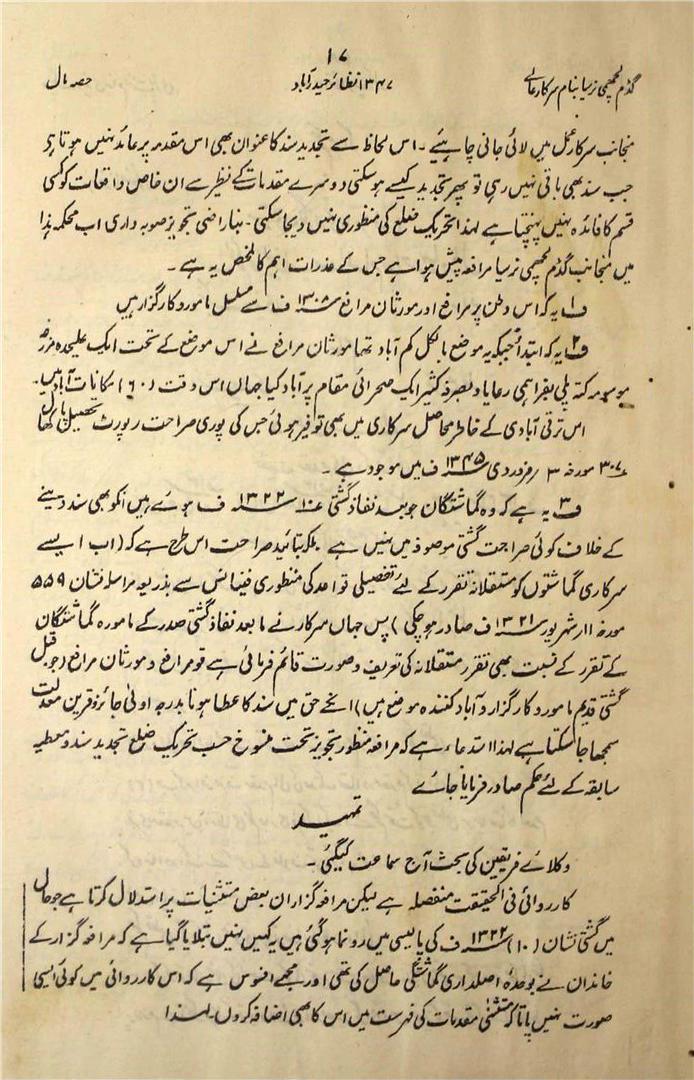 ۱۷
گڈم لچھمی نرسیا بنام سرکار عالی ۱۳۴۷ نظائر حیدرآباد حصہ مال
منجانب سرکار عمل میں لائی جانی چاہئیے ۔ اس لحاظ سے تجدید سند کا عنوان بھی اس مقدمہ پر عائد نہیں ہوتا ہے
جب سند بھی باقی نہیں رہی تو پھر تجدید کیسے ہوسکتی دوسرے مقدمات کے نظیر سے ان خاص واقعات کو کسی
قسم کا فائدہ نہیں پہنچتا ہے لہذا تحریک ضلع کی منظوری نہیں دیجا سکتی ۔ بناراضی تجویز صوبہ داری اب محکمہ ہذا
میں منجانب گڈم لچھمی نرسیا مرافعہ پیش ہوا ہے جس کے عذرات اہم کا ملخص یہ ہے ۔
ف۱ یہ کہ اس وطن پر مرافع اور مورثان مرافع ۱۳۰۸ ف سے مسلسل مامور و کارگزار ہیں
ف۲ یہ کہ ابتداً جبکہ یہ موضع بالکل کم آباد تھا مورثان مرافع نے اس موضع کے تحت ایک علیحدہ مزرعہ
موسومہ کتہ پلی بفراہمی رعایا و بصرفہ کثیر ایک صحرائی مقام پر آباد کیا جہاں اس وقت (۶۰) مکانات آباد ہیں۔
اس ترقی آبادی کے خاطر محاصل سرکاری میں بھی توفیر ہوئی جس کی پوری صراحت رپورٹ تحصیل
۳۰۷ مورخہ ۳ / فروردی ۱۳۴۵ ف میں موجود ہے ۔
ف۳ یہ ہے کہ وہ گماشتگان جو بعد نفاذ گشتی ۱۰ ۱۳۲۲ ف ہوے ہیں انکو بھی سند دینے
کے خلاف کوئی صراحت گشتی موصوفہ میں نہیں ہے بلکہ بتائید صراحت اس طرح ہے کہ (اب ایسے
سرکاری گماشتوں کو مستقلانہ تقرر کے لئے تفصیلی قواعد کی منظوری فینانس سے بذریعہ مراسلہ نشان ۵۵۹
مورخہ ۱۱ / شہریور ۱۳۲۱ ف صادر ہوچکی) پس جہاں سرکار نے مابعد نفاذ گشتی صدر کے مامورہ گماشتگان
کے تقرر کے نسبت بھی تقرر مستقلانہ کی تعریف و صورت قائم فرمائی ہے تو مرافع و مورثان مرافع (جو قبل
گشتی قدیم مامور و کارگزار و آباد کنندہ موضع ہیں) انکے حق میں سند کا عطا ہونا بدرجہ اولیٰ جائز و قرین معدلت
سمجھا جاسکتا ہے لہذا استدعاء ہے کہ مرافعہ منظور تجویز تحت منسوخ حسب تحریک ضلع تجدید سند و معطیہ
سابقہ کے لئے حکم صادر فرمایا جاۓ
تمہید
وکلاۓ فریقین کی بحث آج سماعت کیگئی ۔
کارروائی فی الحقیقت منفصلہ ہے لیکن مرافعہ گزاران بعض مستثنیات پر استدلال کرتا ہے جو حال
میں گشتی نشان (۱۰) ۱۳۲۲ ف کی پالیسی میں رونما ہوگئی ہیں یہ کہیں نہیں بتلایا گیا ہے کہ مرافعہ گزار کے
خاندان نے بوعدۂ اصلداری گماشتگی حاصل کی تھی اور مجھے افسوس ہے کہ اس کارروائی میں کوئی ایسی
صورت نہیں پاتا کہ مستثنیٰ مقدمات کی فہرست میں اس کا بھی اضافہ کروں ۔ لہذا